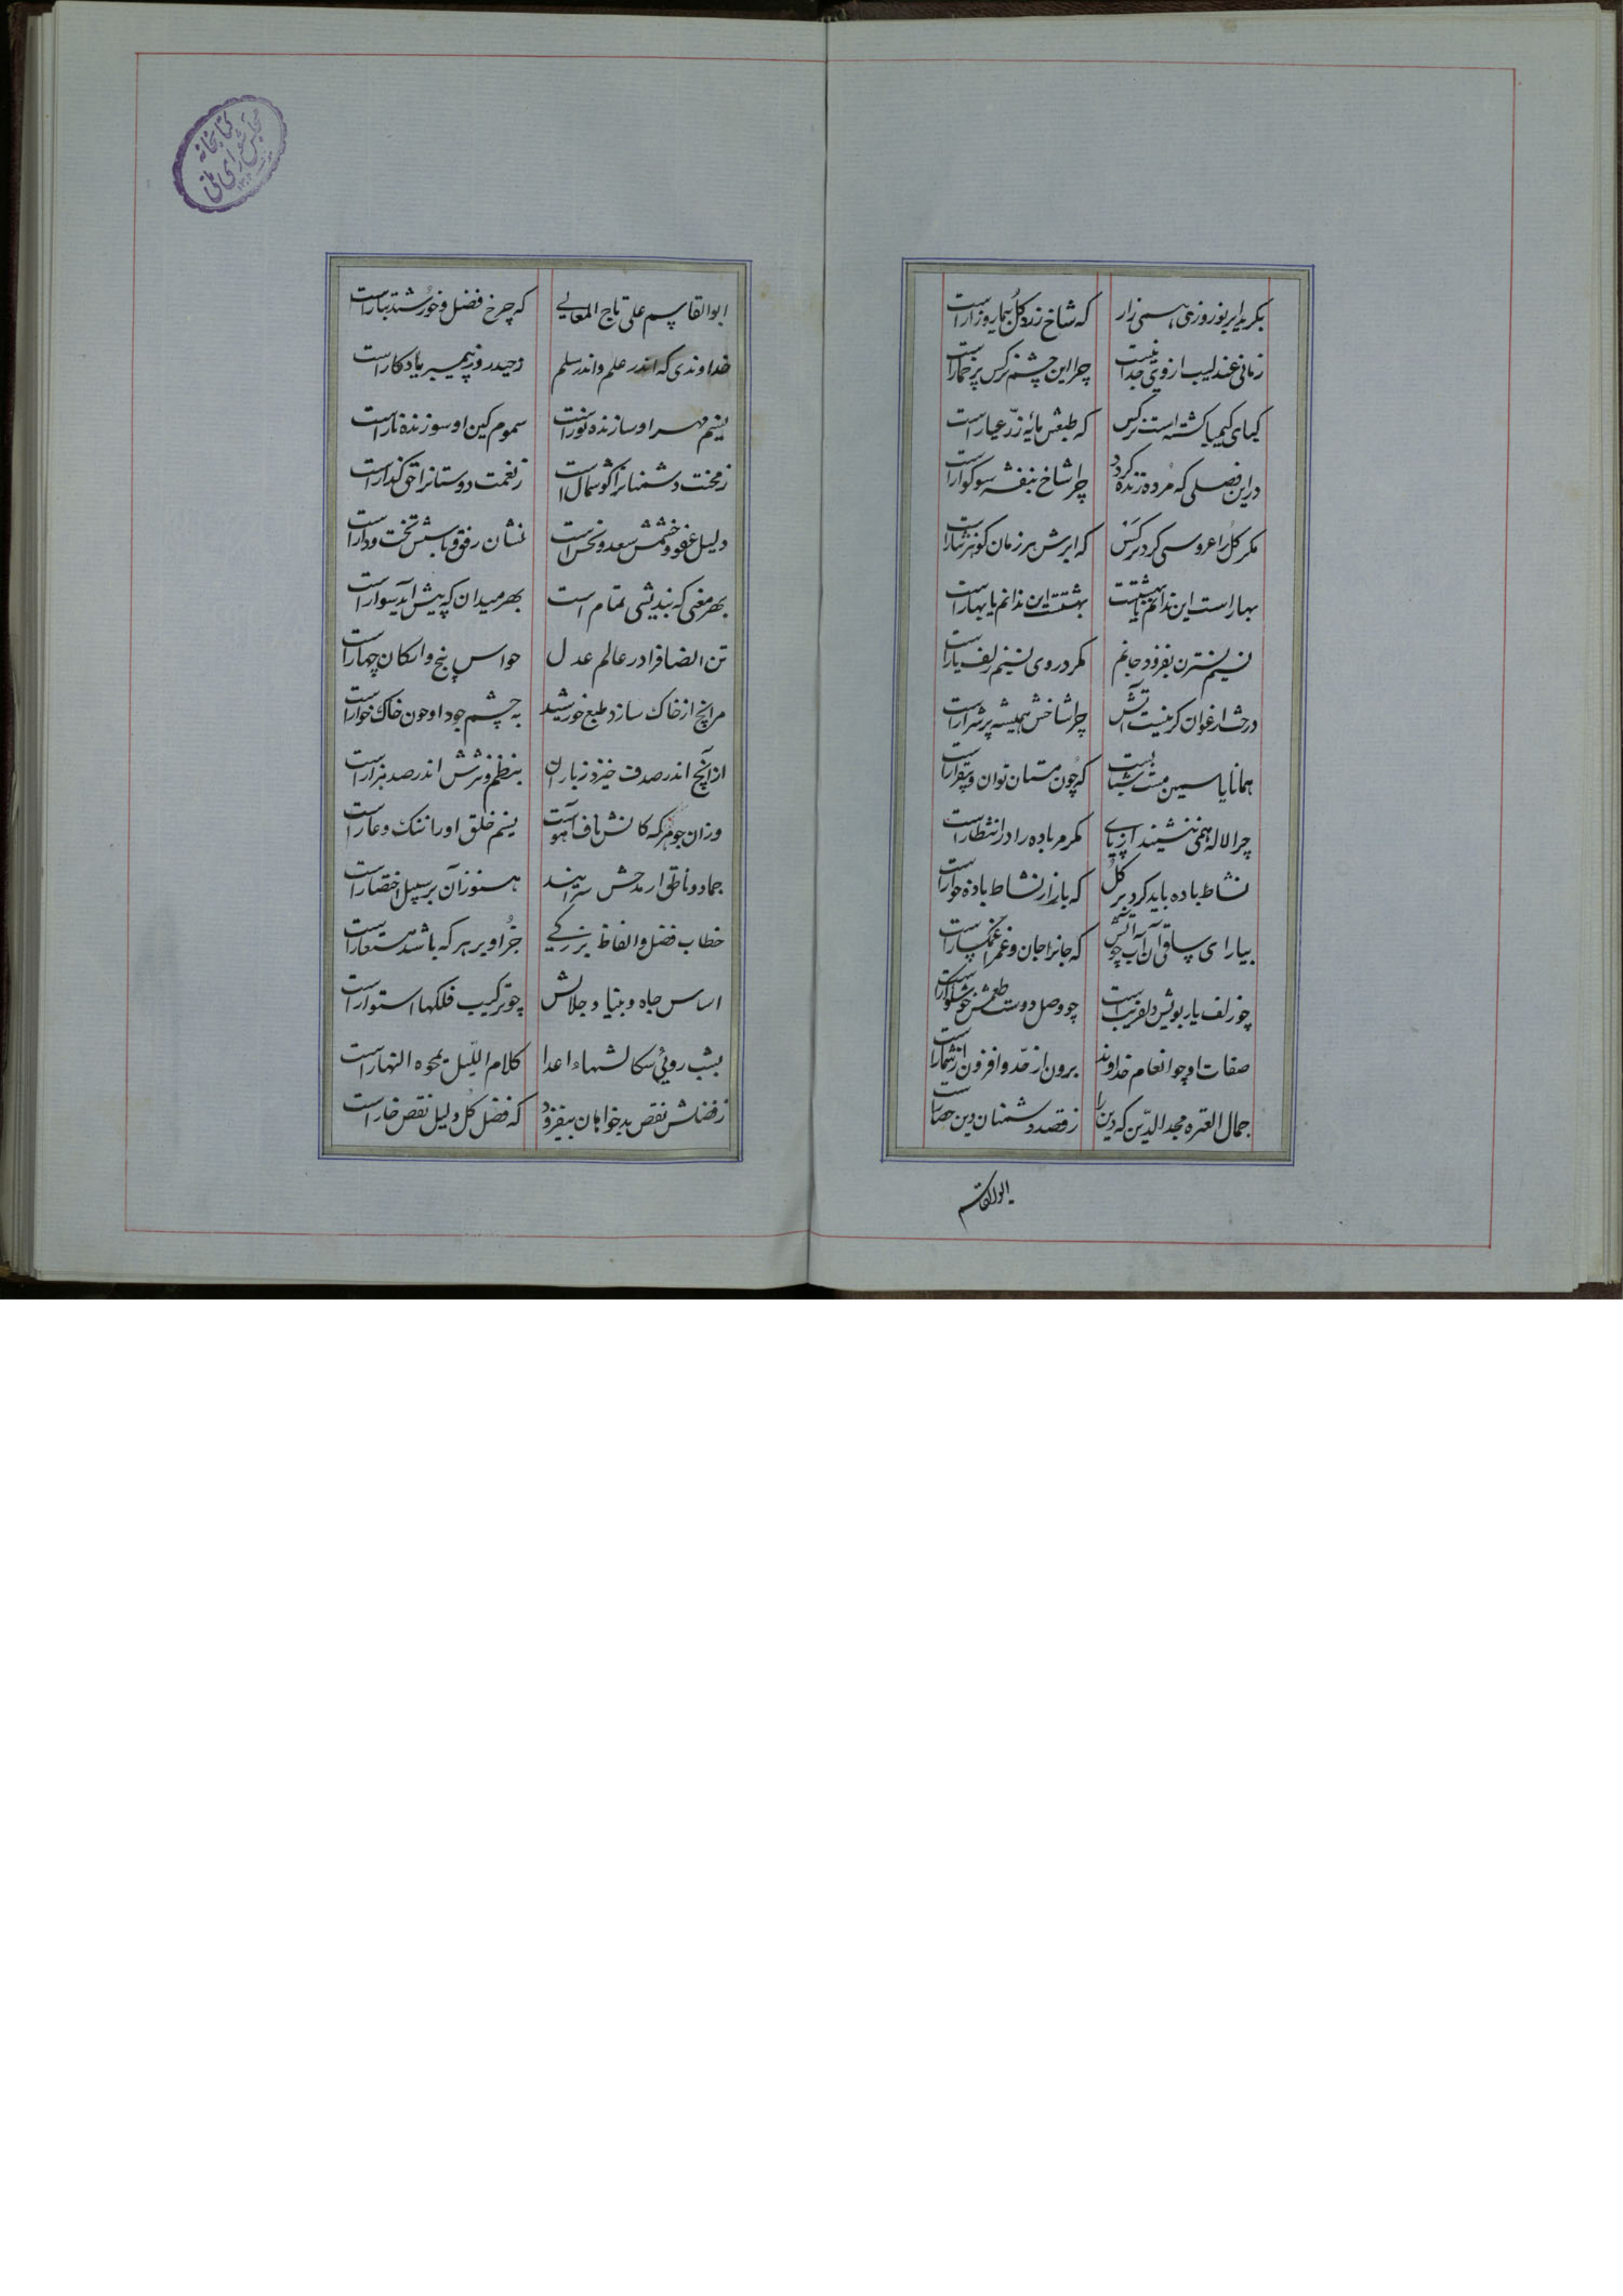 بکرید ابر نوروزی همی زار که شاخ زرد گل بیمار و زار است
زمانی عندلیب از وی جدا نیست چرا این چشم نرکس پر خمار است
کیمیای کیمیا کشته است نرکس که طبعش مایه زر عیار است
در این فصلی که مرده زنده کردد چرا شاخ بنفشه سوکوار است
مکر کل را عروسی کرد نرکس که ابرش هر زمان کوهر نثار است
بهار است این ندانم یا بهشتست بهشتست این ندانم یا بهار است
نسیم نسترن بفزود جانم مکر در وی نسیم زلف یار است
درخت ارغوان کر نیست آتش چرا شاخش همیشه پر شرار است
همانا یاسمین مست شبانه است که چون مستان نوان و بیقرار است
چرا لاله همی ننشیند از پای مکر مر باده را در انتظار است
نشاط باده باید کرد بر کل که بازار نشاط باده خوار است
بیار ای ساقی آن آب چو آتش که جانرا جان و غم را غمکسار است
چو زلف یار بویش دلفریب است چو وصل دوست طعمش خوشکوار است
صفات او چو انعام خداوند برون از حد و افزون از شمار است
جمال العتره مجد الدین که دین را ز قصد دشمنان دین حصار است
ابوالقاسم
ابوالقاسم علی تاج المعالی که چرخ فضل و خورشید تبار است
خداوندی که اندر علم و اندر سلم ز حیدر وز پیمبر یادکار است
نسیم مهر او سازنده نور است سموم کین او سوزنده نار است
ز محنت دشمنانرا کوشمال است ز نعمت دوستانرا حق کذار است
دلیل عفو و خشمش سعد و نحس است نشان رفق و باسش تخت و دار است
بهر معنی که بندیشی تمام است بهر میدان که پیش آید سوار است
تن انصاف را در عالم عدل حواس پنج و ارکان چهار است
مر انچ از خاک سازد طبع خورشید به چشم جود او چون خاک خوار است
از آنچ اندر صدف خیزد ز باران بنظم و نثرش اندر صد هزار است
وز ان جوهر که کانش ناف آهو است نسیم خلق او را ننک و عار است
جماد و ناطق ار مدحش سرایند هنوز آن بر سبیل اختصار است
خطاب فضل و الفاظ بزرکی جز او بر هر که باشد مستعار است
اساس جاه و بنیاد جلالش چو ترکیب فلکها استوار است
بشب روئی سکالشهاء اعدا کلام اللیل یمحوه النهار است
ز فضلش نقص بدخواهان بیفزود که فضل کل دلیل نقص خار است
کتابخانه
مجلس شورای ملی